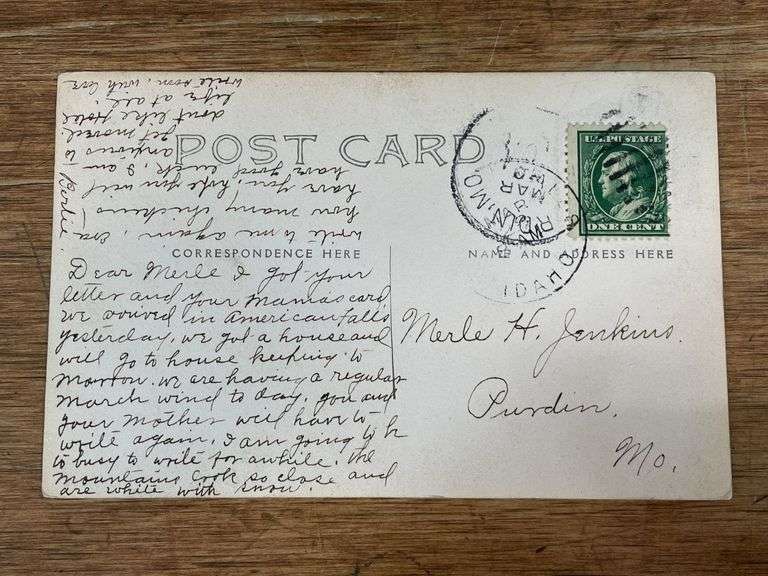 POST CARD
CORRESPONDENCE HERE
NAME AND ADDRESS HERE
U.S. POSTAGE
ONE CENT
MAR
IDAHO
Dear Merle I got your
letter and your Mamas card,
we arived in American falls
yesterday, we got a house and
will go to house keeping to
morrow. we are having a regular
March wind to day, you and
your mother will have to
write again, I am going to b
to busy to write for awhile. the
mountains look so close and
are white with snow.
write to me again,
how many chickens
have you, hope you will
have good luck, I am
anxious to
get moved
dont like Hotel
life at all.
write soon, with love
Bertie
Merle H. Jenkins.
Purdin,
Mo.